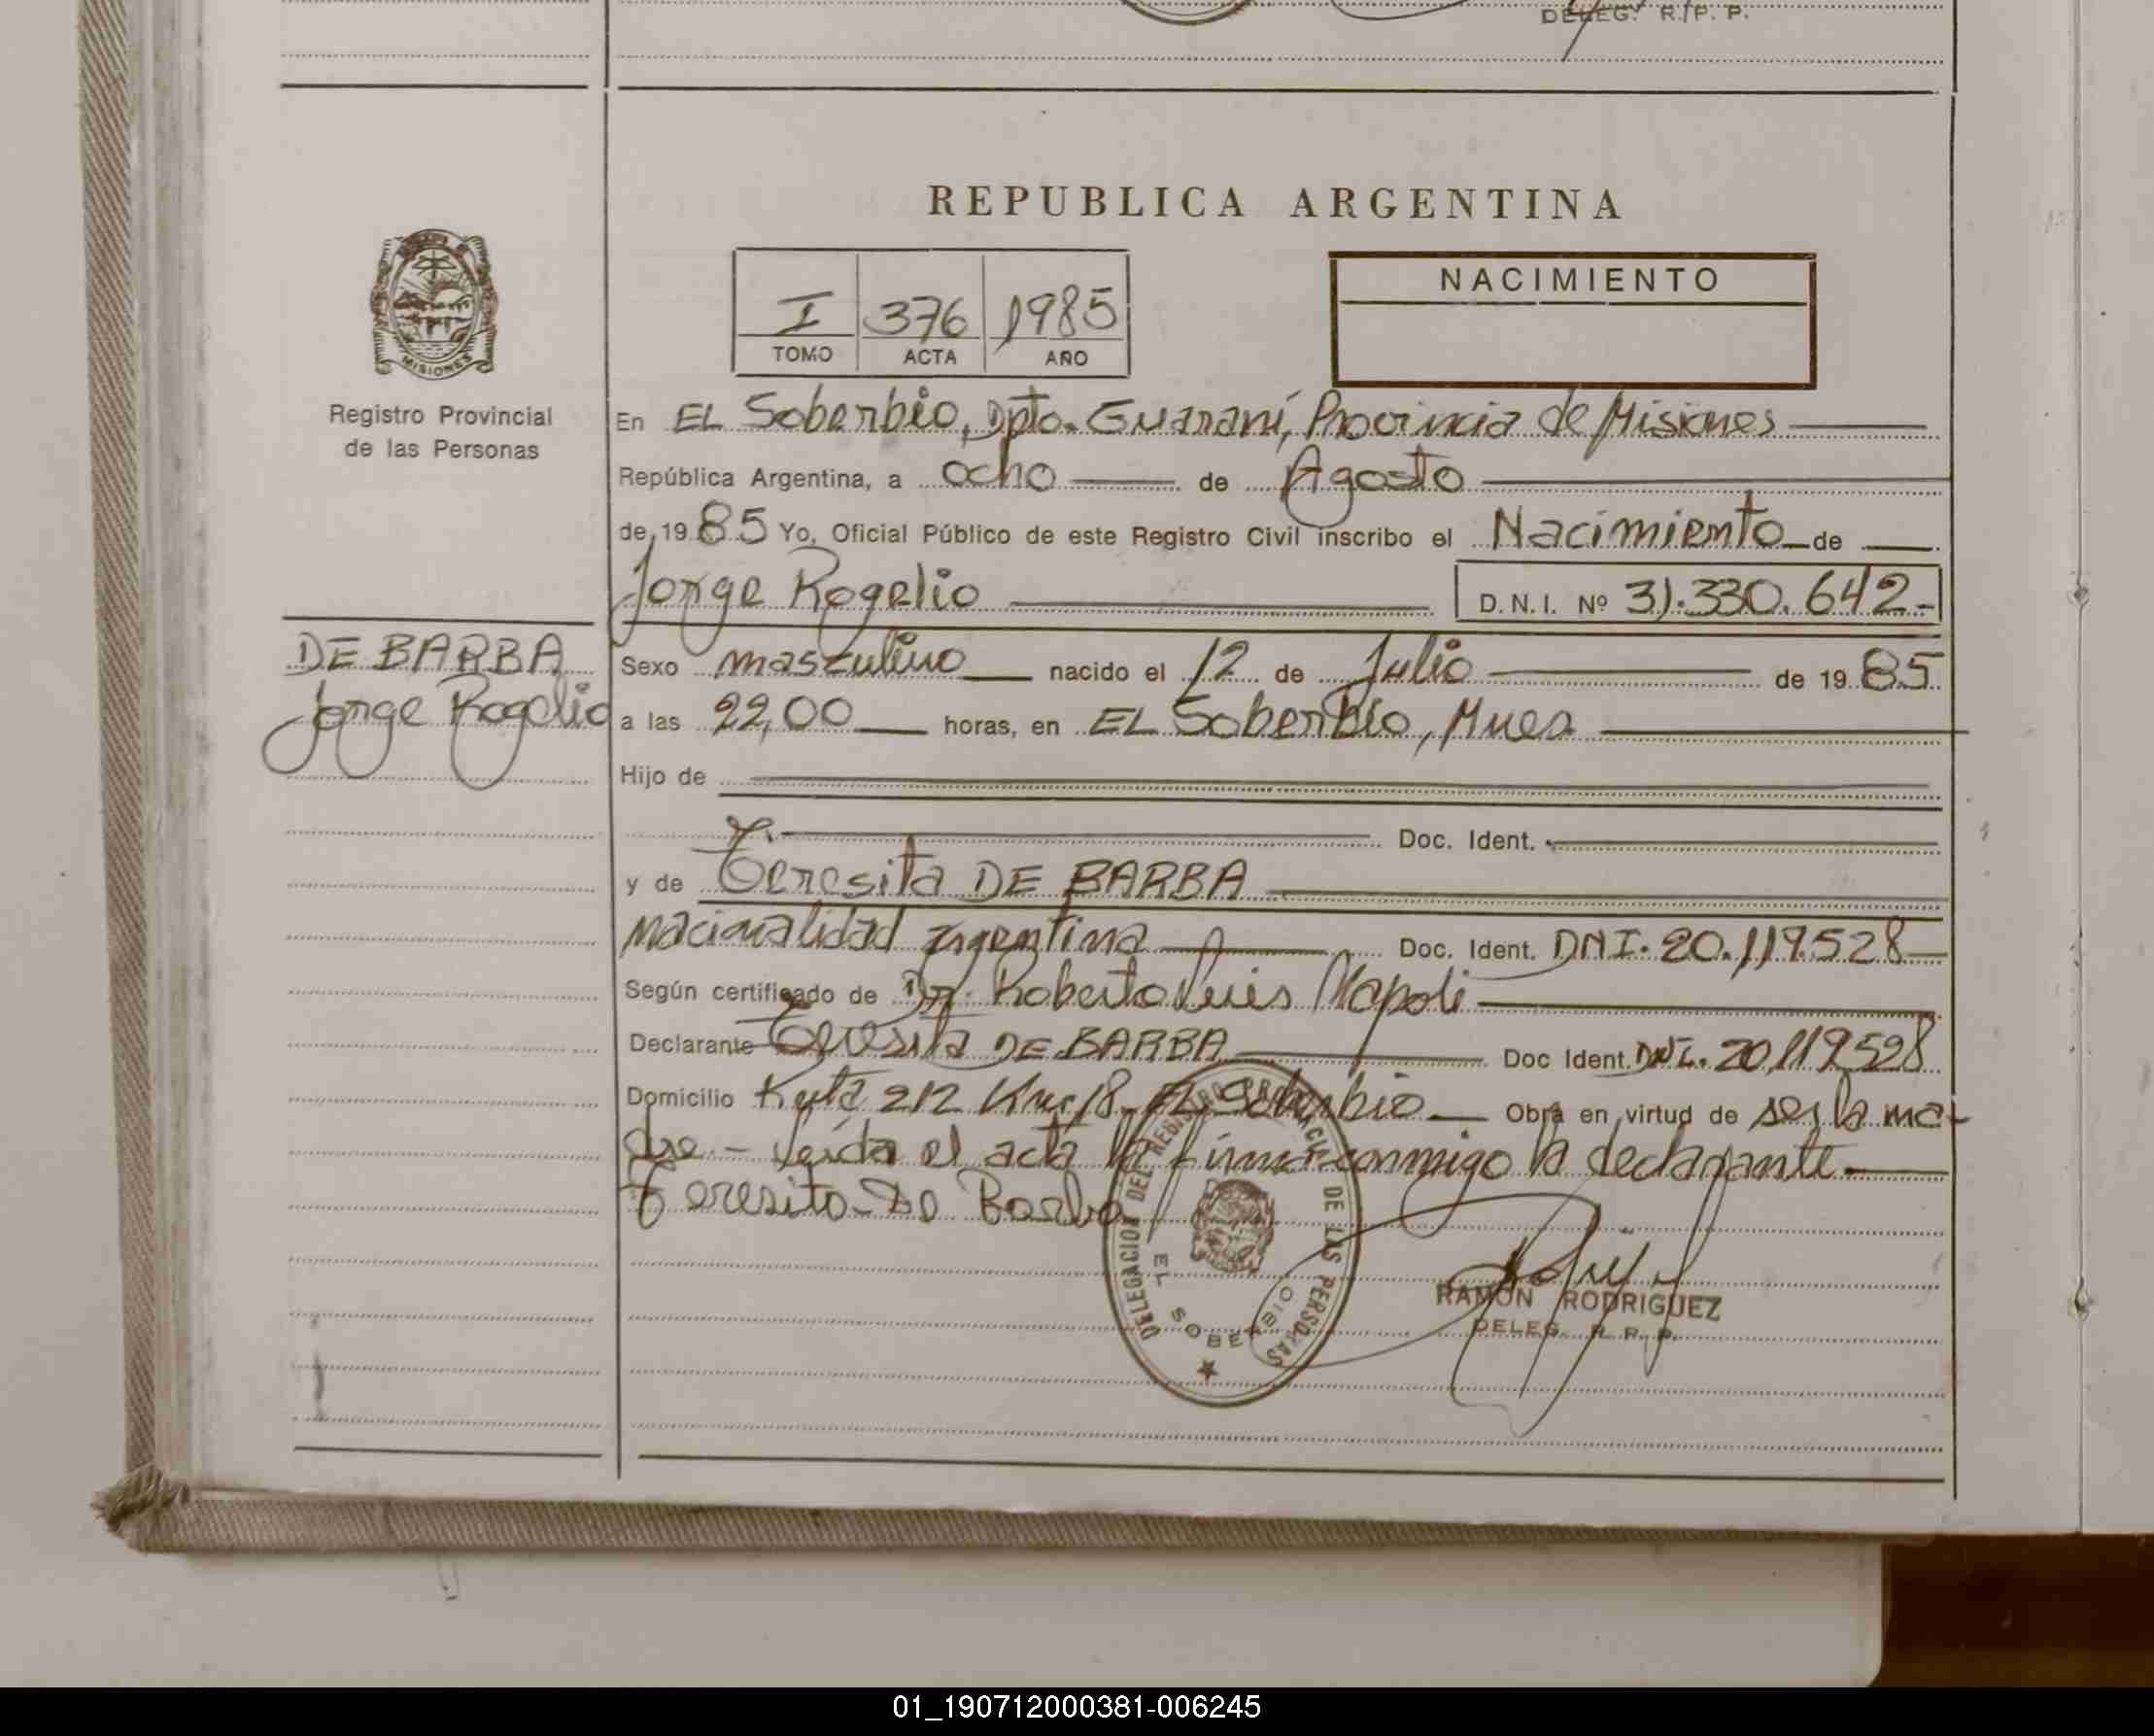 DELEG. R. P. P.
REPUBLICA ARGENTINA
MISIONES
Registro Provincial
de las Personas
I 376 1985
TOMO ACTA AÑO
NACIMIENTO
En EL Soberbio, Dpto. Guaraní, Provincia de Misiones
República Argentina, a ocho de Agosto
de 1985 Yo, Oficial Público de este Registro Civil inscribo el Nacimiento de
Jorge Rogelio D.N.I. Nº 31.330.642-
DE BARBA
Jorge Rogelio
Sexo masculino nacido el 12 de Julio de 1985
a las 22,00 horas, en EL Soberbio, Mnes
Hijo de
Doc. Ident.
y de Teresita DE BARBA
nacionalidad argentina Doc. Ident. DNI. 20.119.528
Según certificado de Dr. Roberto Luis Napoli
Declarante Teresita DE BARBA Doc Ident. DNI. 20.119.528
Domicilio Ruta 212 Km. 18 - EL Soberbio Obra en virtud de ser la ma-
dre - Leída el acta la firma conmigo la declarante
Teresita De Barba
DELEGACION DEL REGISTRO PROVINCIAL DE LAS PERSONAS
EL SOBERBIO
RAMON RODRIGUEZ
DELEG. R. P. P.
01_190712000381-006245